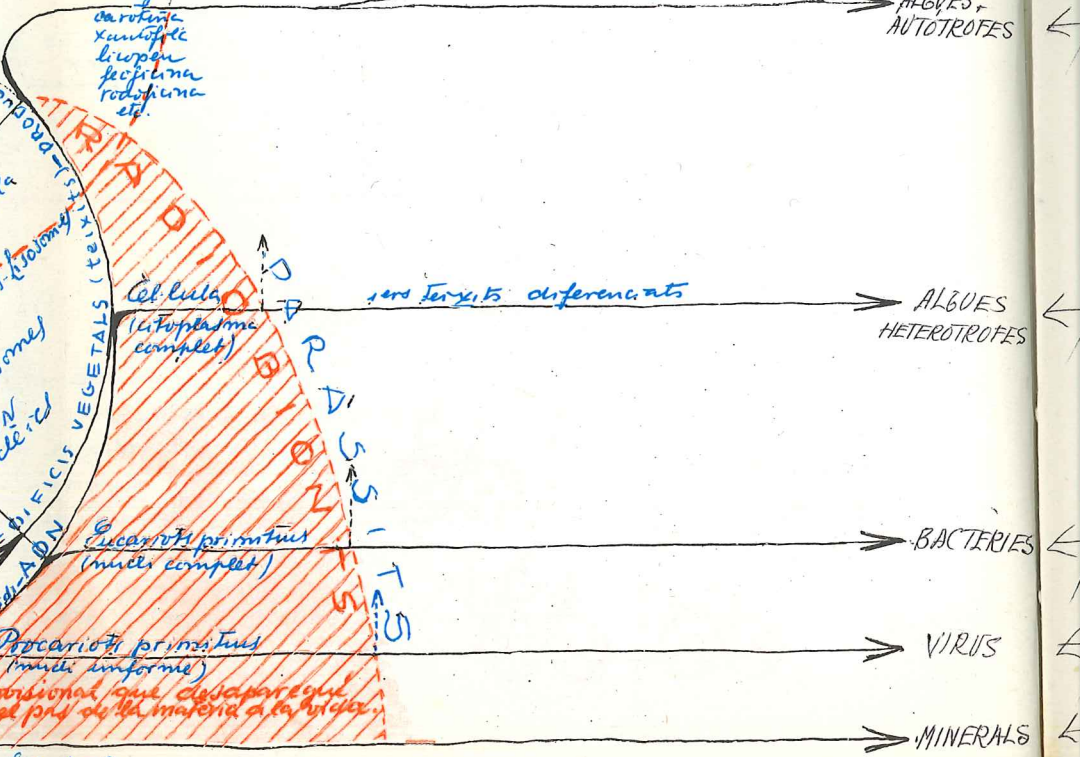 carotina
xantofil·le
licopeu
feoficina
rodoficina
etc.
ALGUES
AUTÒTROFES
RADIOBIONTS
PARÀSSITS
EDIFICIS VEGETALS (teixits)
Cèl·lula
(citoplasma
complet)
sers teixits diferenciats
ALGUES
HETERÒTROFES
Eucariots primitius
(nucli complet)
BACTERIES
ADN
Procariots primitius
(nucli uniforme)
VIRUS
que desaparegué
el pas de la matèria a la vida.
MINERALS